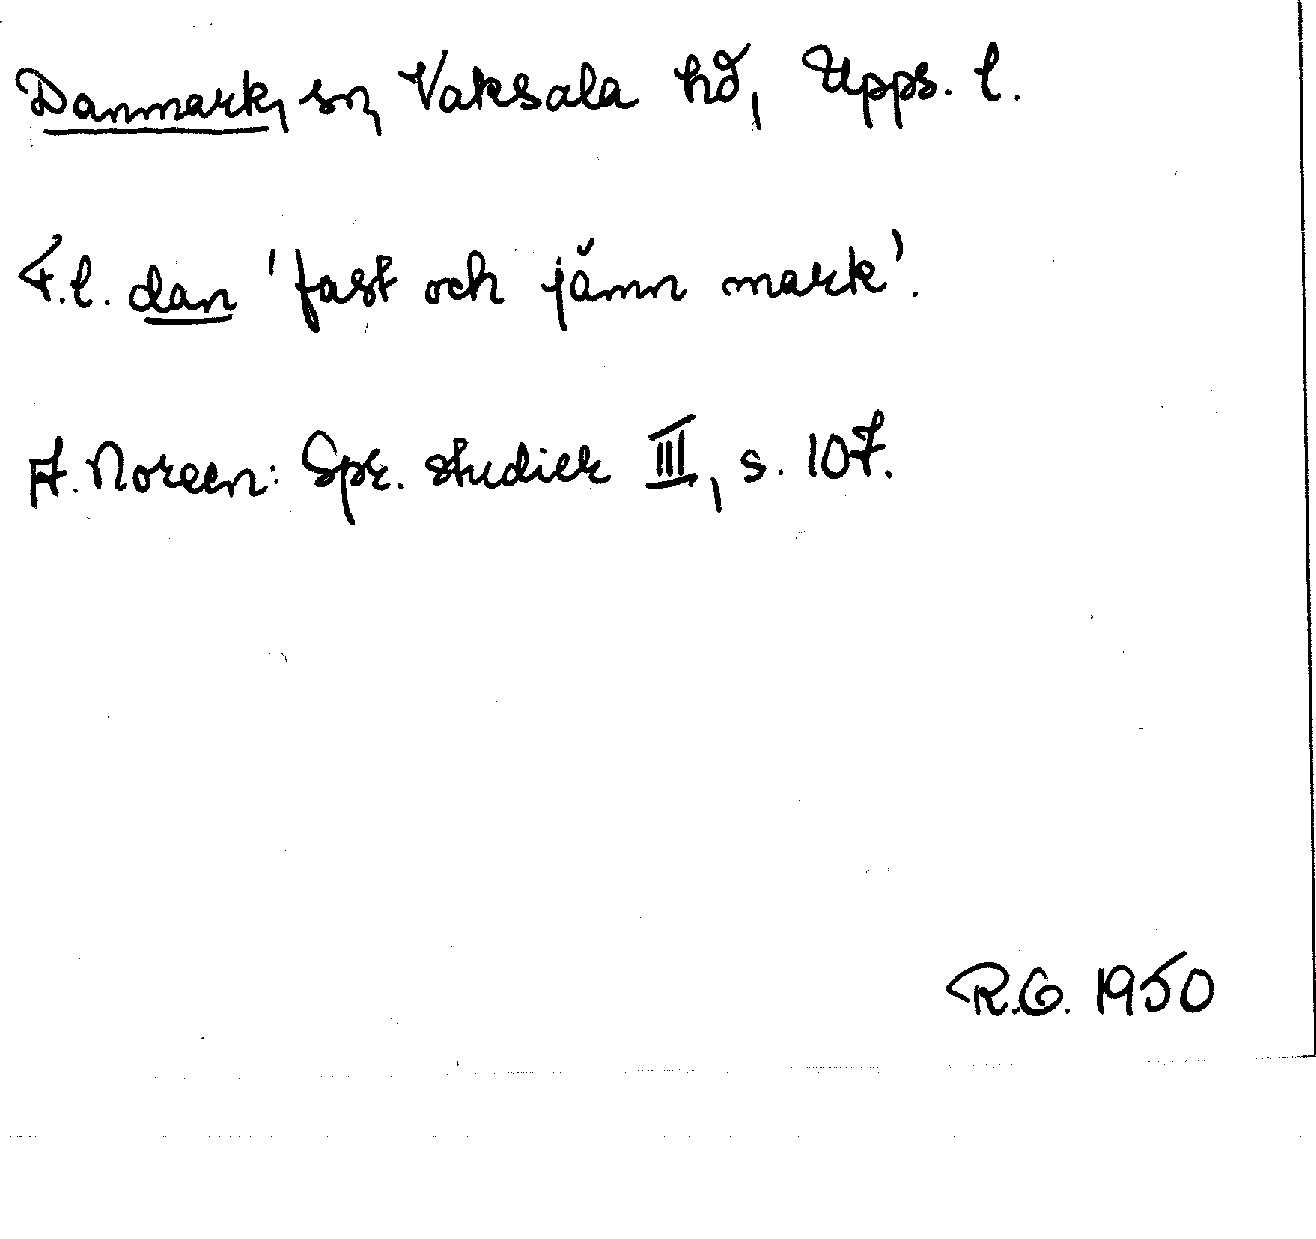 Danmark, sn, Vaksala hd, Upps. l.
F.l. dan 'fast och jämn mark'.
A. Noreen: Spr. studier III, s. 107.
R.G. 1950